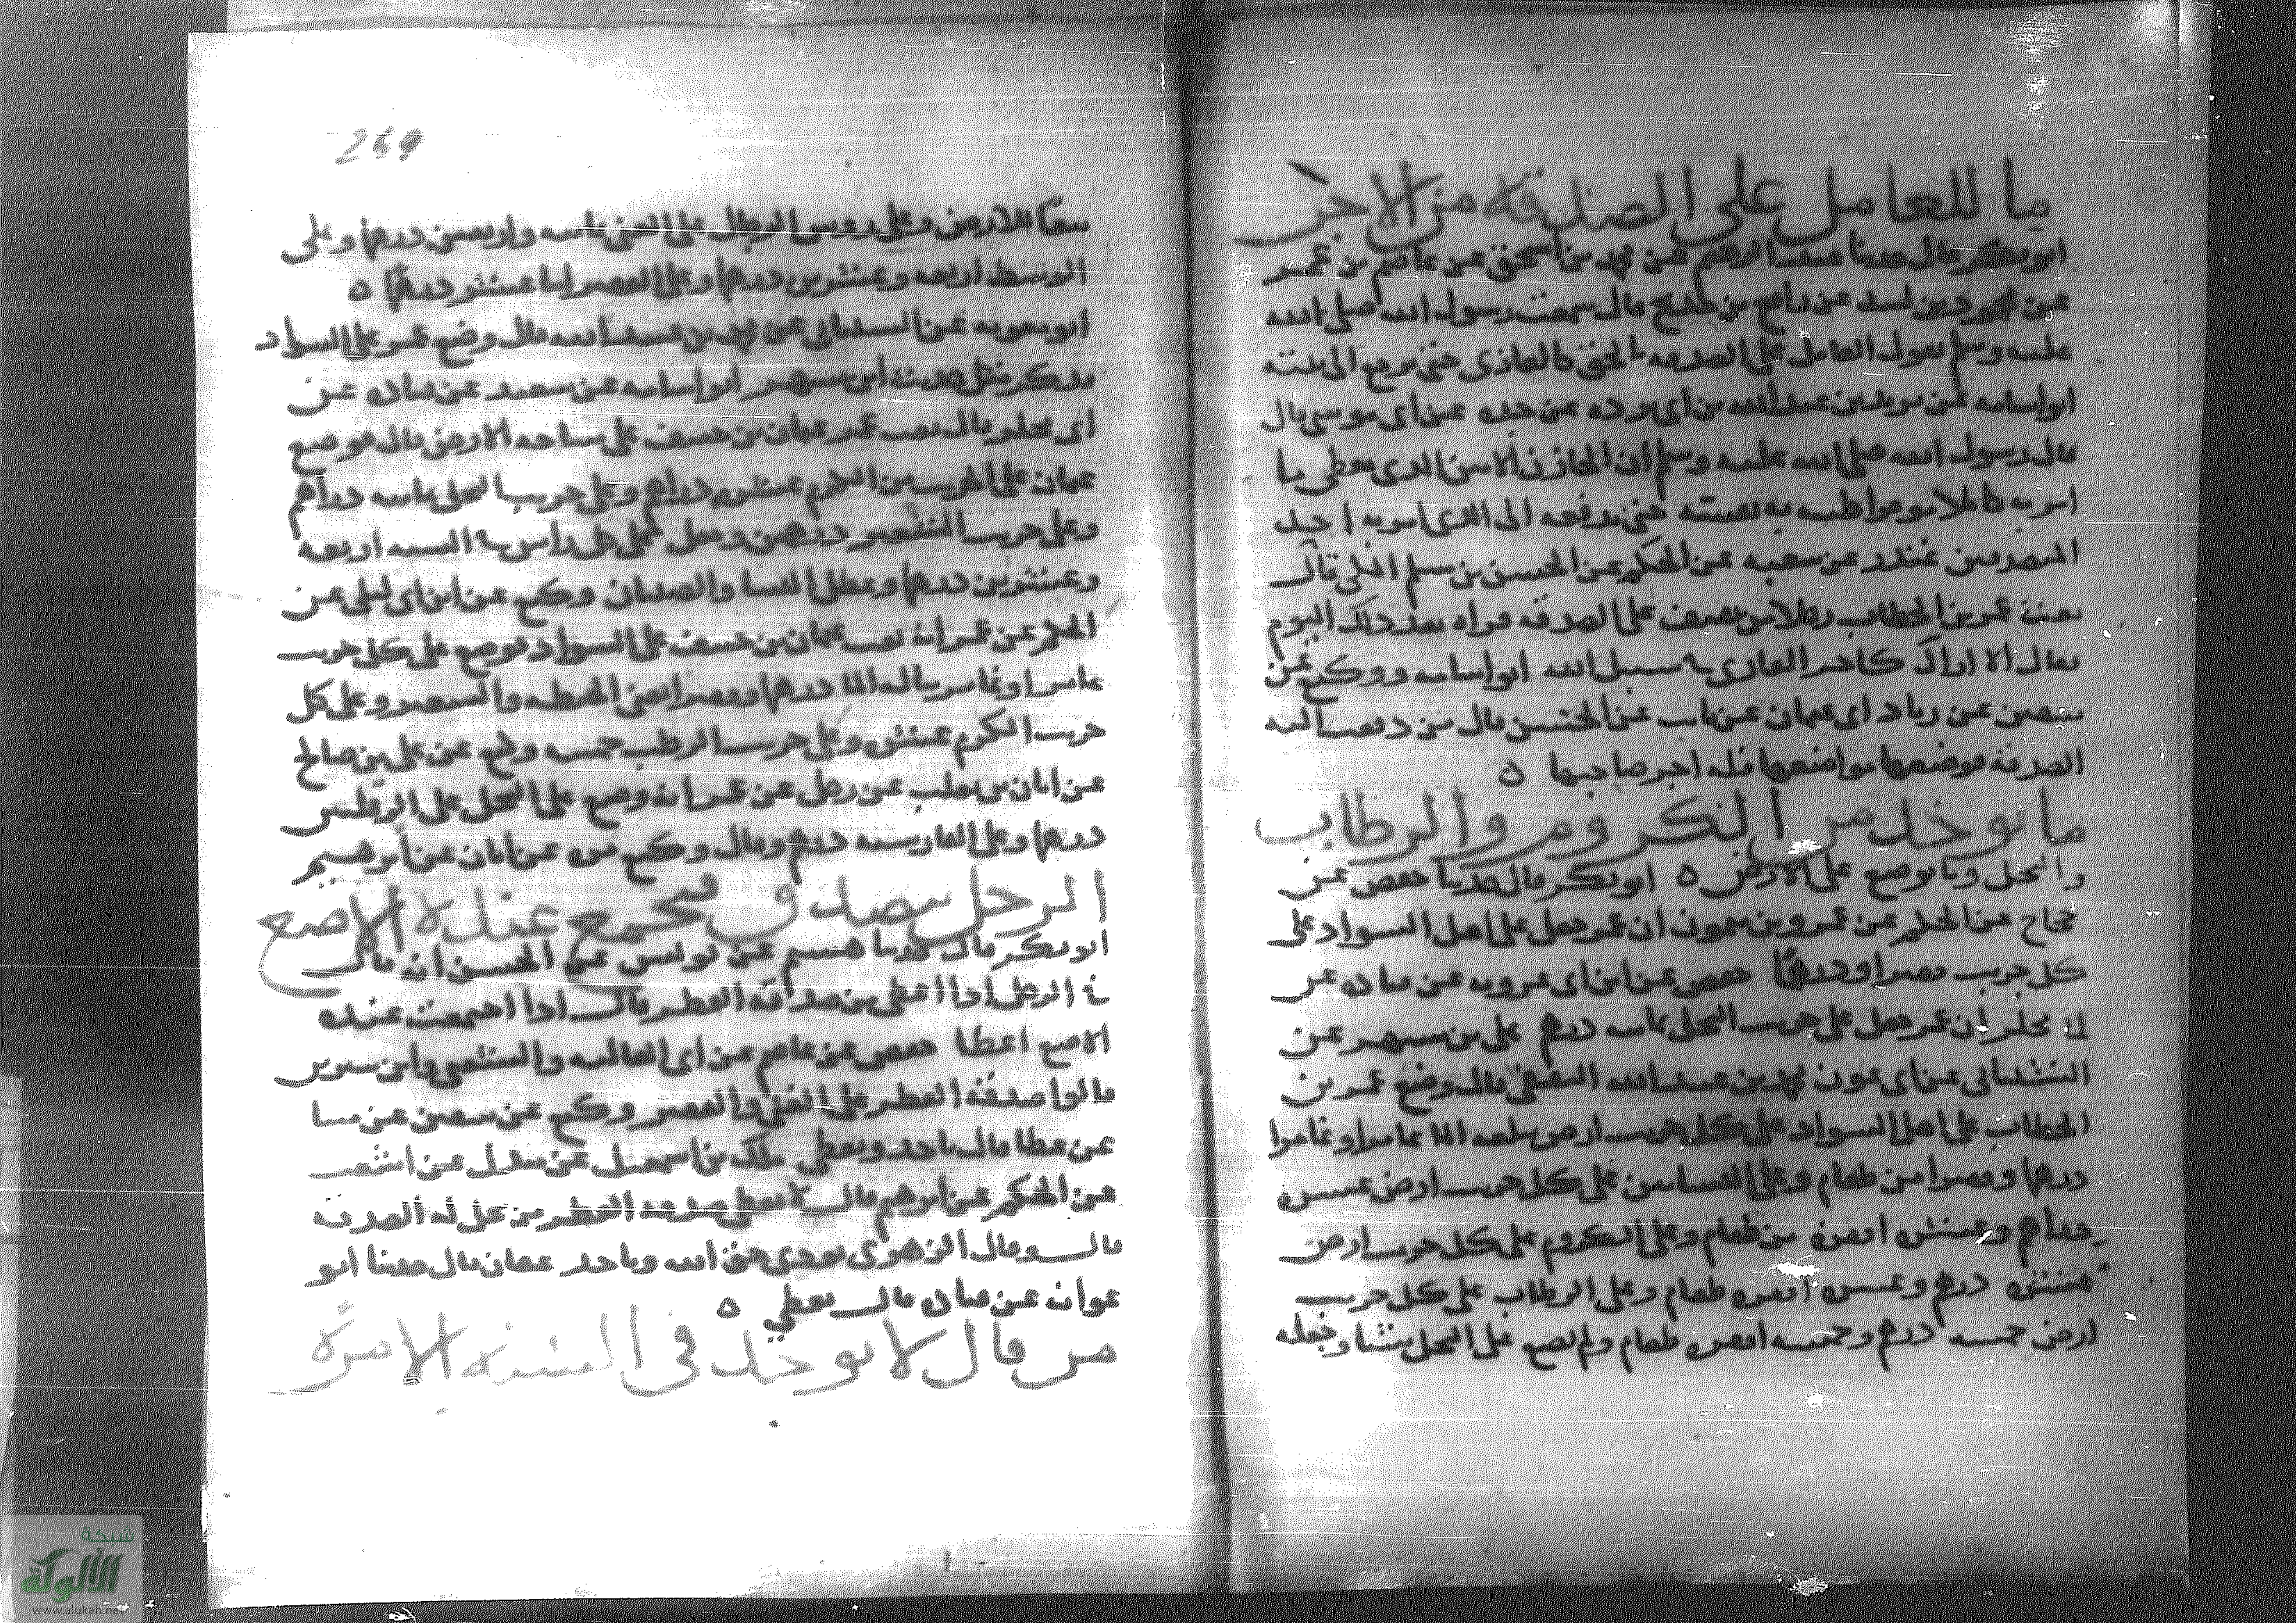 ما للعامل على الصدقة من الاجر
ابو بكر قال حدثنا عبد الرحيم عن محمد بن اسحق عن عاصم بن عمر
عن محمود بن لبيد عن رافع بن خديج قال سمعت رسول الله صلى الله
عليه وسلم يقول العامل على الصدقه بالحق كالغازى حتى يرجع الى بيته
ابو اسامه عن بريد بن عبد الله بن ابى برده عن جده عن ابى موسى قال
قال رسول الله صلى الله عليه وسلم ان الخازن الامين الذى يعطى ما
امر به كاملا موفرا طيبه به نفسه حتى يدفعه الى الذى امر به احد
المتصدقين غندر عن شعبه عن الحكم عن الحسن بن مسلم المكى قال
بعث عمر بن الخطاب رجلا من ثقيف على الصدقه فراه بعد ذلك اليوم
فقال الا اراك كاجر الغازى فى سبيل الله ابو اسامه ووكيع عن
سفين عن زياد ابى عثمان عن الحسن قال من دفعت اليه
الصدقه فوضعها مواضعها فله اجر صاحبها ٥
ما يوخذ من الكروم والرطاب
والنخل وما يوضع على الارض ٥ ابو بكر قال حدثنا حفص عن
حجاج عن الحكم عن عمرو بن ميمون ان عمر جعل على اهل السواد على
كل جريب قفيزا ودرهما حفص عن ابن ابى عروبه عن قتاده عن
ابى مجلز ان عمر جعل على جريب النخل ثمانيه درهم على بن مسهر عن
الشيبانى عن ابى عون محمد بن عبيد الله الثقفى قال وضع عمر بن
الخطاب على اهل السواد على كل جريب ارض يبلغه الما عامرا وغامرا
درهما وقفيزا من طعام وعلى البساتين على كل جريب ارض عشره
دراهم وعشره اقفزه من طعام وعلى الكروم على كل جريب ارض
عشره درهم وعشره اقفزه طعام وعلى الرطاب على كل جريب
ارض خمسه درهم وخمسه اقفزه طعام ولم يضع على النخل شيئا وجعله
269
تبعا للارض وعلى روس الرجال على الغنى ثمانيه واربعين درهما وعلى
الوسط اربعه وعشرين درهما وعلى الفقير اثنا عشر درهما ٥
ابو معويه عن الشيبانى عن محمد بن عبيد الله قال وضع عمر على السواد
فذكر مثل حديث ابن مسهر ابو اسامه عن سعيد عن قتاده عن
ابى مجلز قال بعث عمر عثمان بن حنيف على مساحه الارض قال فوضع
عثمان على الجريب من الكرم عشره دراهم وعلى جريب النخل ثمانيه دراهم
وعلى جريب الشعير درهمين وجعل على كل راس فى السنه اربعه
وعشرين درهما وعطل النسا والصبيان وكيع عن ابن ابى ليلى عن
الحكم عن عمر انه بعث عثمان بن حنيف على السواد فوضع على كل جريب
عامر او غامر يناله الما درهما وقفيزا يعنى الحنطه والشعير وعلى كل
جريب الكرم عشره وعلى جريب الرطب خمسه وكيع عن على بن صالح
عن ابان بن تغلب عن رجل عن عمر انه وضع على النخل على الرقلتين
درهما وعلى الفارسيه درهم وقال وكيع عن ابان عن ابرهيم
الرجل يصدق فيجتمع عنده الاصع
ابو بكر قال حدثنا هشيم عن يونس عن الحسن انه قال
فى الرجل اذا اعطى من صدقه الفطر قال اذا اجتمعت عنده
الاصع اعطا حفص عن عاصم عن ابى العاليه والشعبى وابن سيرين
قالوا صدقه الفطر على الغنى والفقير وكيع عن سفين عن
عن عطا قال ياخذ ويعطى ملك بن اسمعيل عن مندل عن اشعث
عن الحكم عن ابرهيم قال لا يعطى صدقه الفطر من تحل له الصدقه
قال وقال الزهرى يودى حق الله وياخذ عفان قال حدثنا ابو
عوانه عن قتاده قال يعطى ٥
من قال لا يوخذ فى السنه الا مره
شبكة
الألوكة
www.alukah.net